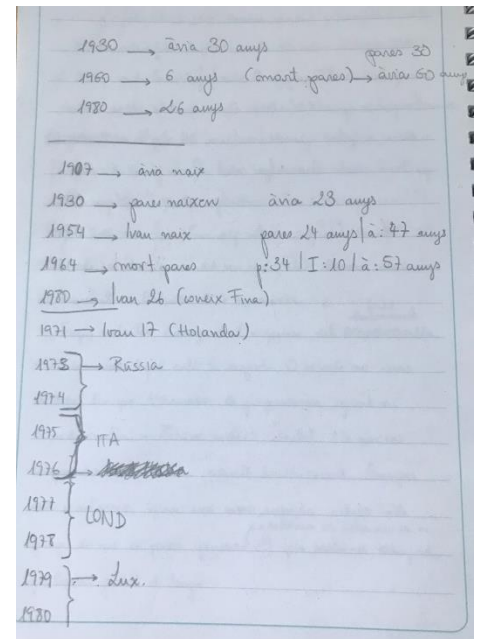 1930 → àvia 30 anys pares 30
1960 → 6 anys (mort pares) → àvia 60 anys
1980 → 26 anys
1907 → àvia naix
1930 → pares naixen àvia 23 anys
1954 → Ivan naix pares 24 anys | à: 47 anys
1964 → mort pares p: 34 | I: 10 | à: 57 anys
1980 → Ivan 26 (coneix Fina)
1971 → Ivan 17 (Holanda)
1973 → Rússia
1974
1975 ITA
1976 →
1977
LOND
1978
1979 → Lux.
1980